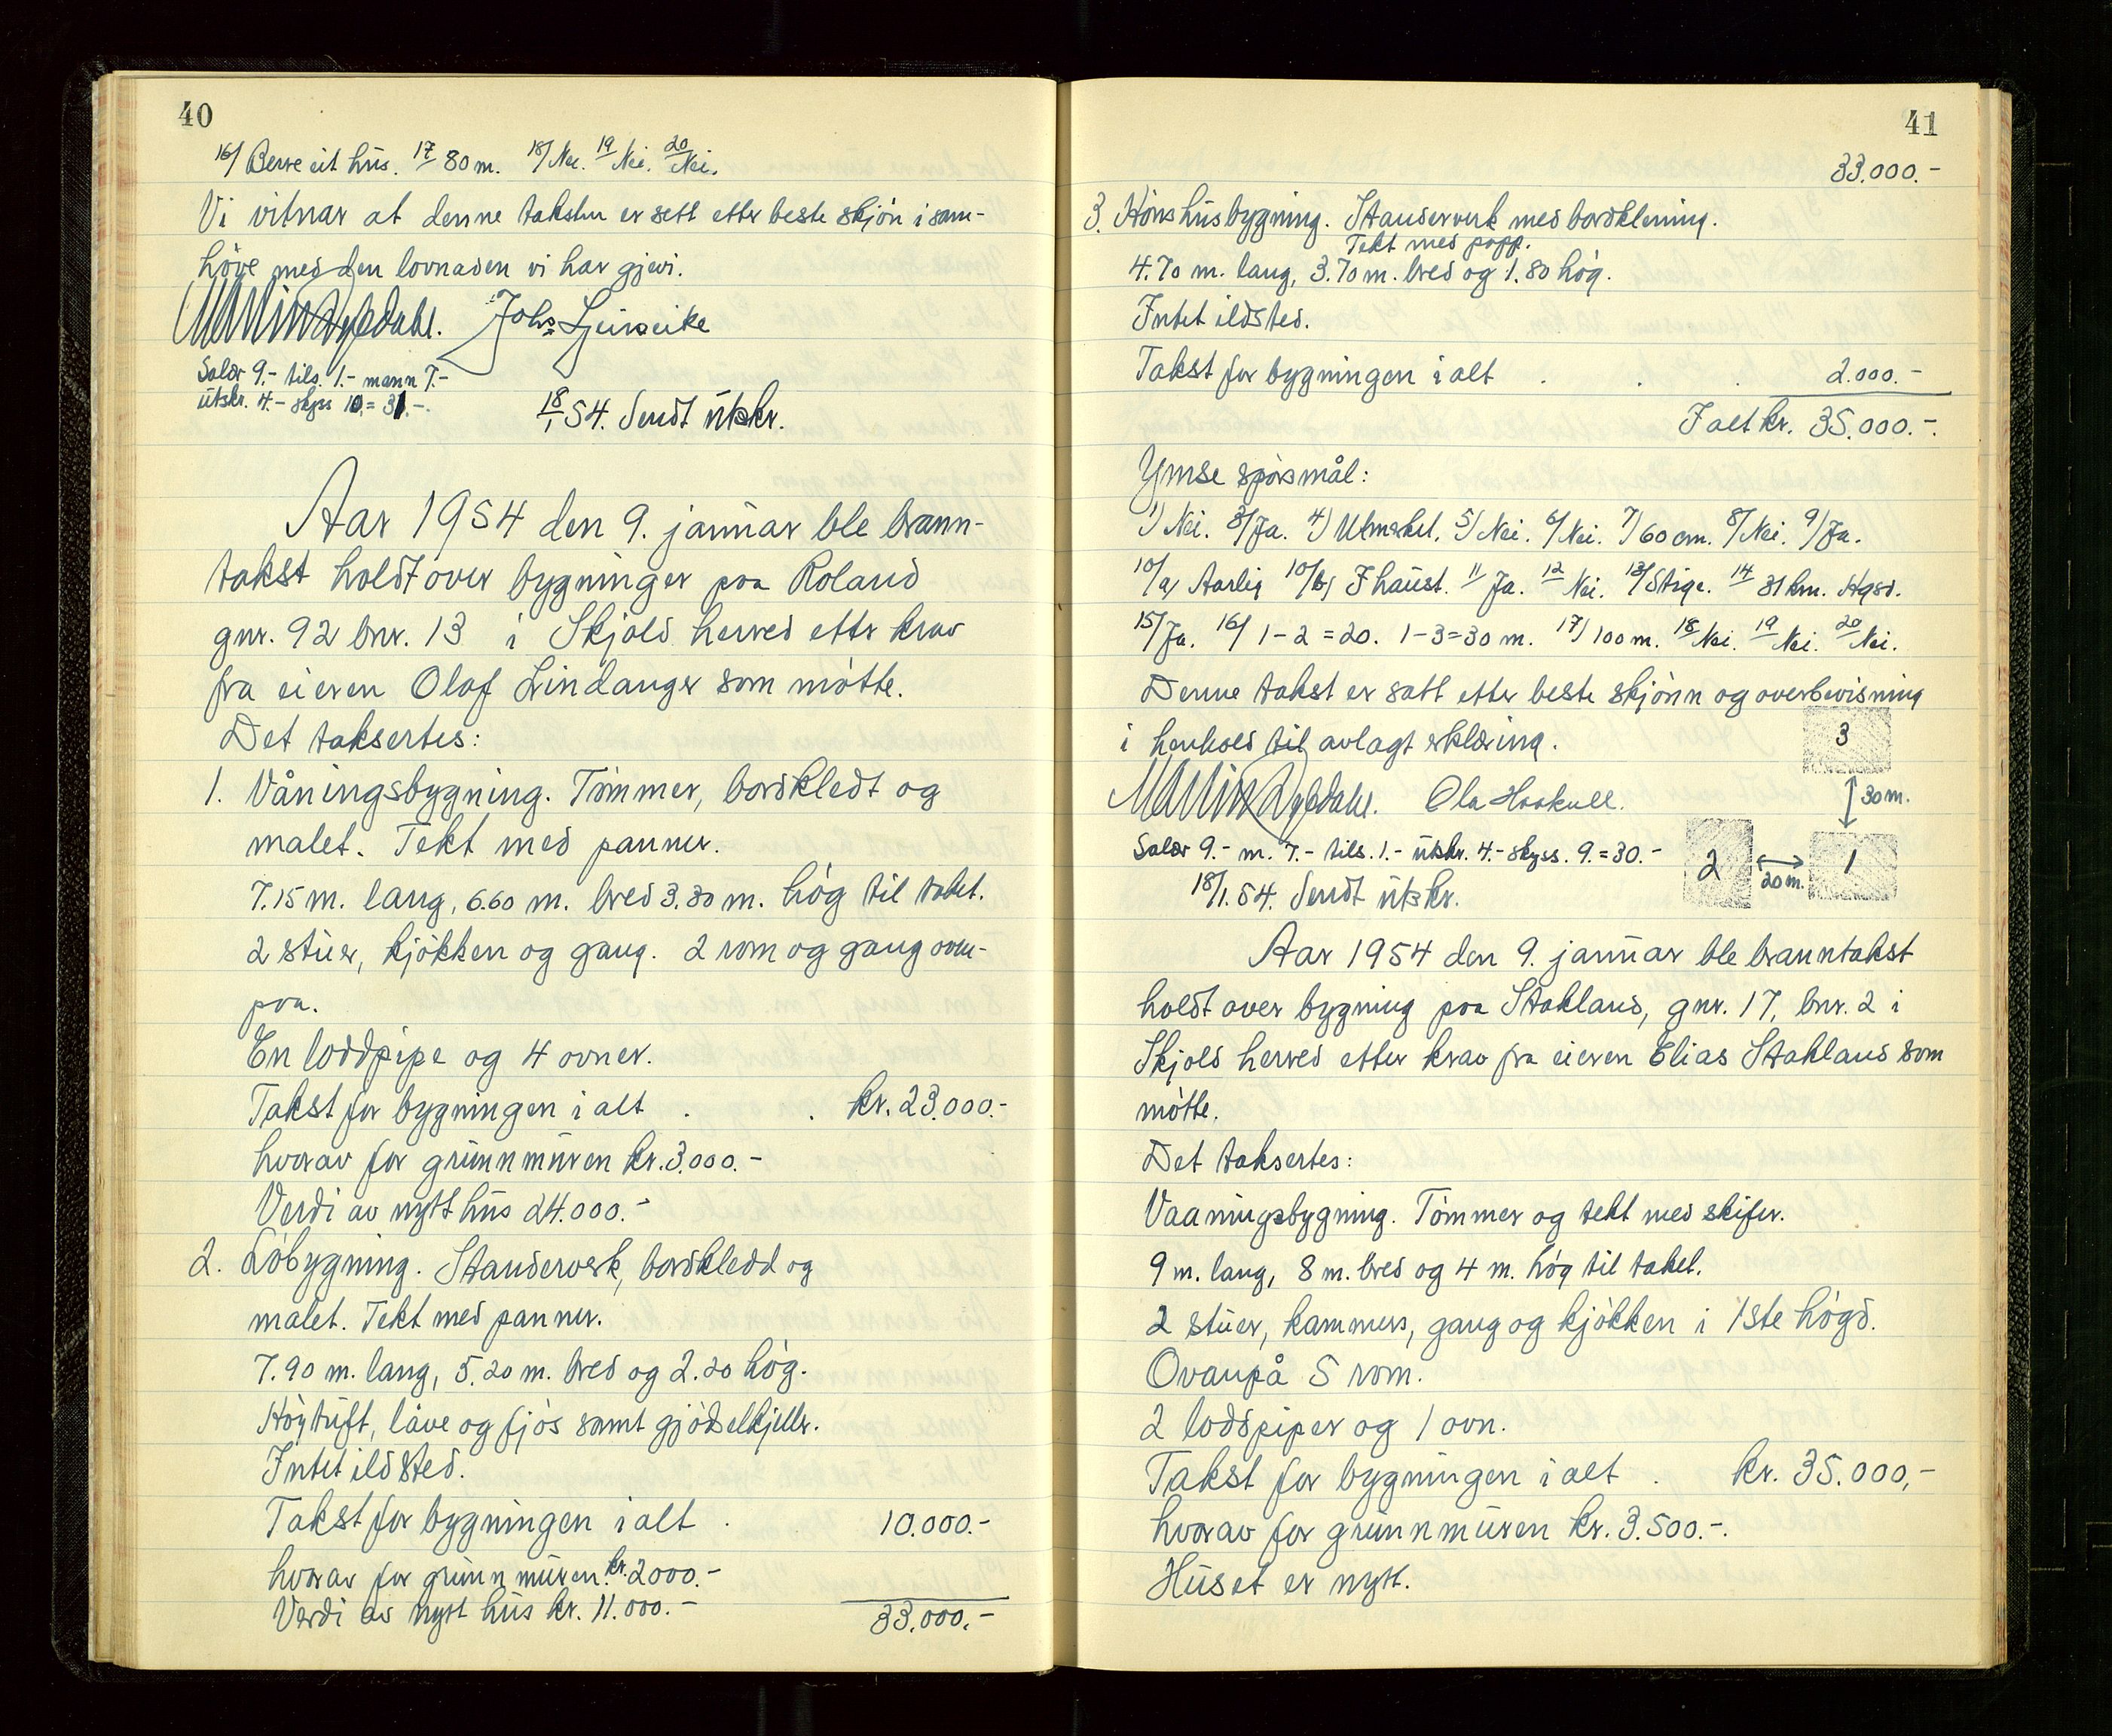 40
16/ Berre eit hus. 17 80 m. 18/ Nei. 19 Nei. 20 Nei.
Vi vitnar at denne taksten er sett etter beste skjön i sam-
höve med den lovnaden vi har gjevi.
Salær 9.- tils. 1.- mann 7.-
utskr. 4.- skyss 10.= 31.-.
18/1 54. Sendt utskr.
Aar 1954 den 9. januar ble brann-
takst holdt over bygninger paa Roland
gnr. 92 bnr. 13 i Skjold herred etter krav
fra eieren Olaf Lindanger som mötte.
Det taksertes:
1. Våningsbygning. Tömmer, bordkledt og
malet. Tekt med panner.
7.15 m. lang, 6.60 m. bred 3.30 m. hög til taket.
2 stuer, kjökken og gang. 2 rom og gang oven-
paa.
En loddpipe og 4 ovner.
Takst for bygningen i alt . . kr. 23.000.-
hvorav for grunnmuren kr. 3.000.-
Verdi av nytt hus 24.000.-
2. Löbygning. Stenderverk, bordkledd og
malet. Tekt med panner.
7.90 m. lang, 5.20 m. bred og 2.20 hög.
Höytuft, låve og fjös samt gjödselkjeller.
Intet ildsted.
Takst for bygningen i alt . 10.000.-
hvorav for grunnmuren kr. 2000.-
Verdi av nytt hus kr. 11.000.-
33.000.-
41
33.000.-
3. Hönshusbygning. Stenderverk med bordkledning.
Tekt med papp.
4.70 m. lang, 3.70 m. bred og 1.80 hög.
Intet ildsted.
Takst for bygningen i alt . . . 2.000.-
I alt kr. 35.000.-.
Ymse spörsmål:
1/ Nei. 3/ Ja. 4/ Utmerket. 5/ Nei. 6/ Nei. 7/ 60 cm. 8/ Nei. 9/ Ja.
10/a/ Aarlig 10/b/ I haust. 11 Ja. 12 Nei. 13/ Stige. 14 31 km. Hgsd.
15/ Ja. 16/ 1-2=20. 1-3=30 m. 17/ 100 m. 18 Nei. 19 Nei. 20 Nei.
Denne takst er satt etter beste skjönn og overbevisning
i henhold til avlagt erklæring.
3
30 m.
2
20 m.
1
Salær 9.- m. 7.- tils. 1.- utskr. 4.- skyss. 9.=30.-
18/1.54. Sendt utskr.
Aar 1954 den 9. januar ble branntakst
holdt over bygning paa Stakland, gnr. 17, bnr. 2 i
Skjold herred etter krav fra eieren Elias Stakland som
mötte.
Det taksertes:
Vaaningsbygning. Tömmer og tekt med skifer.
9 m. lang, 8 m. bred og 4 m. hög til taket.
2 stuer, kammers, gang og kjökken i 1ste högd.
Ovanpå 5 rom.
2 loddpiper og 1 ovn.
Takst for bygningen i alt . kr. 35.000,-
hvorav for grunnmuren kr. 3.500.-.
Huset er nytt.